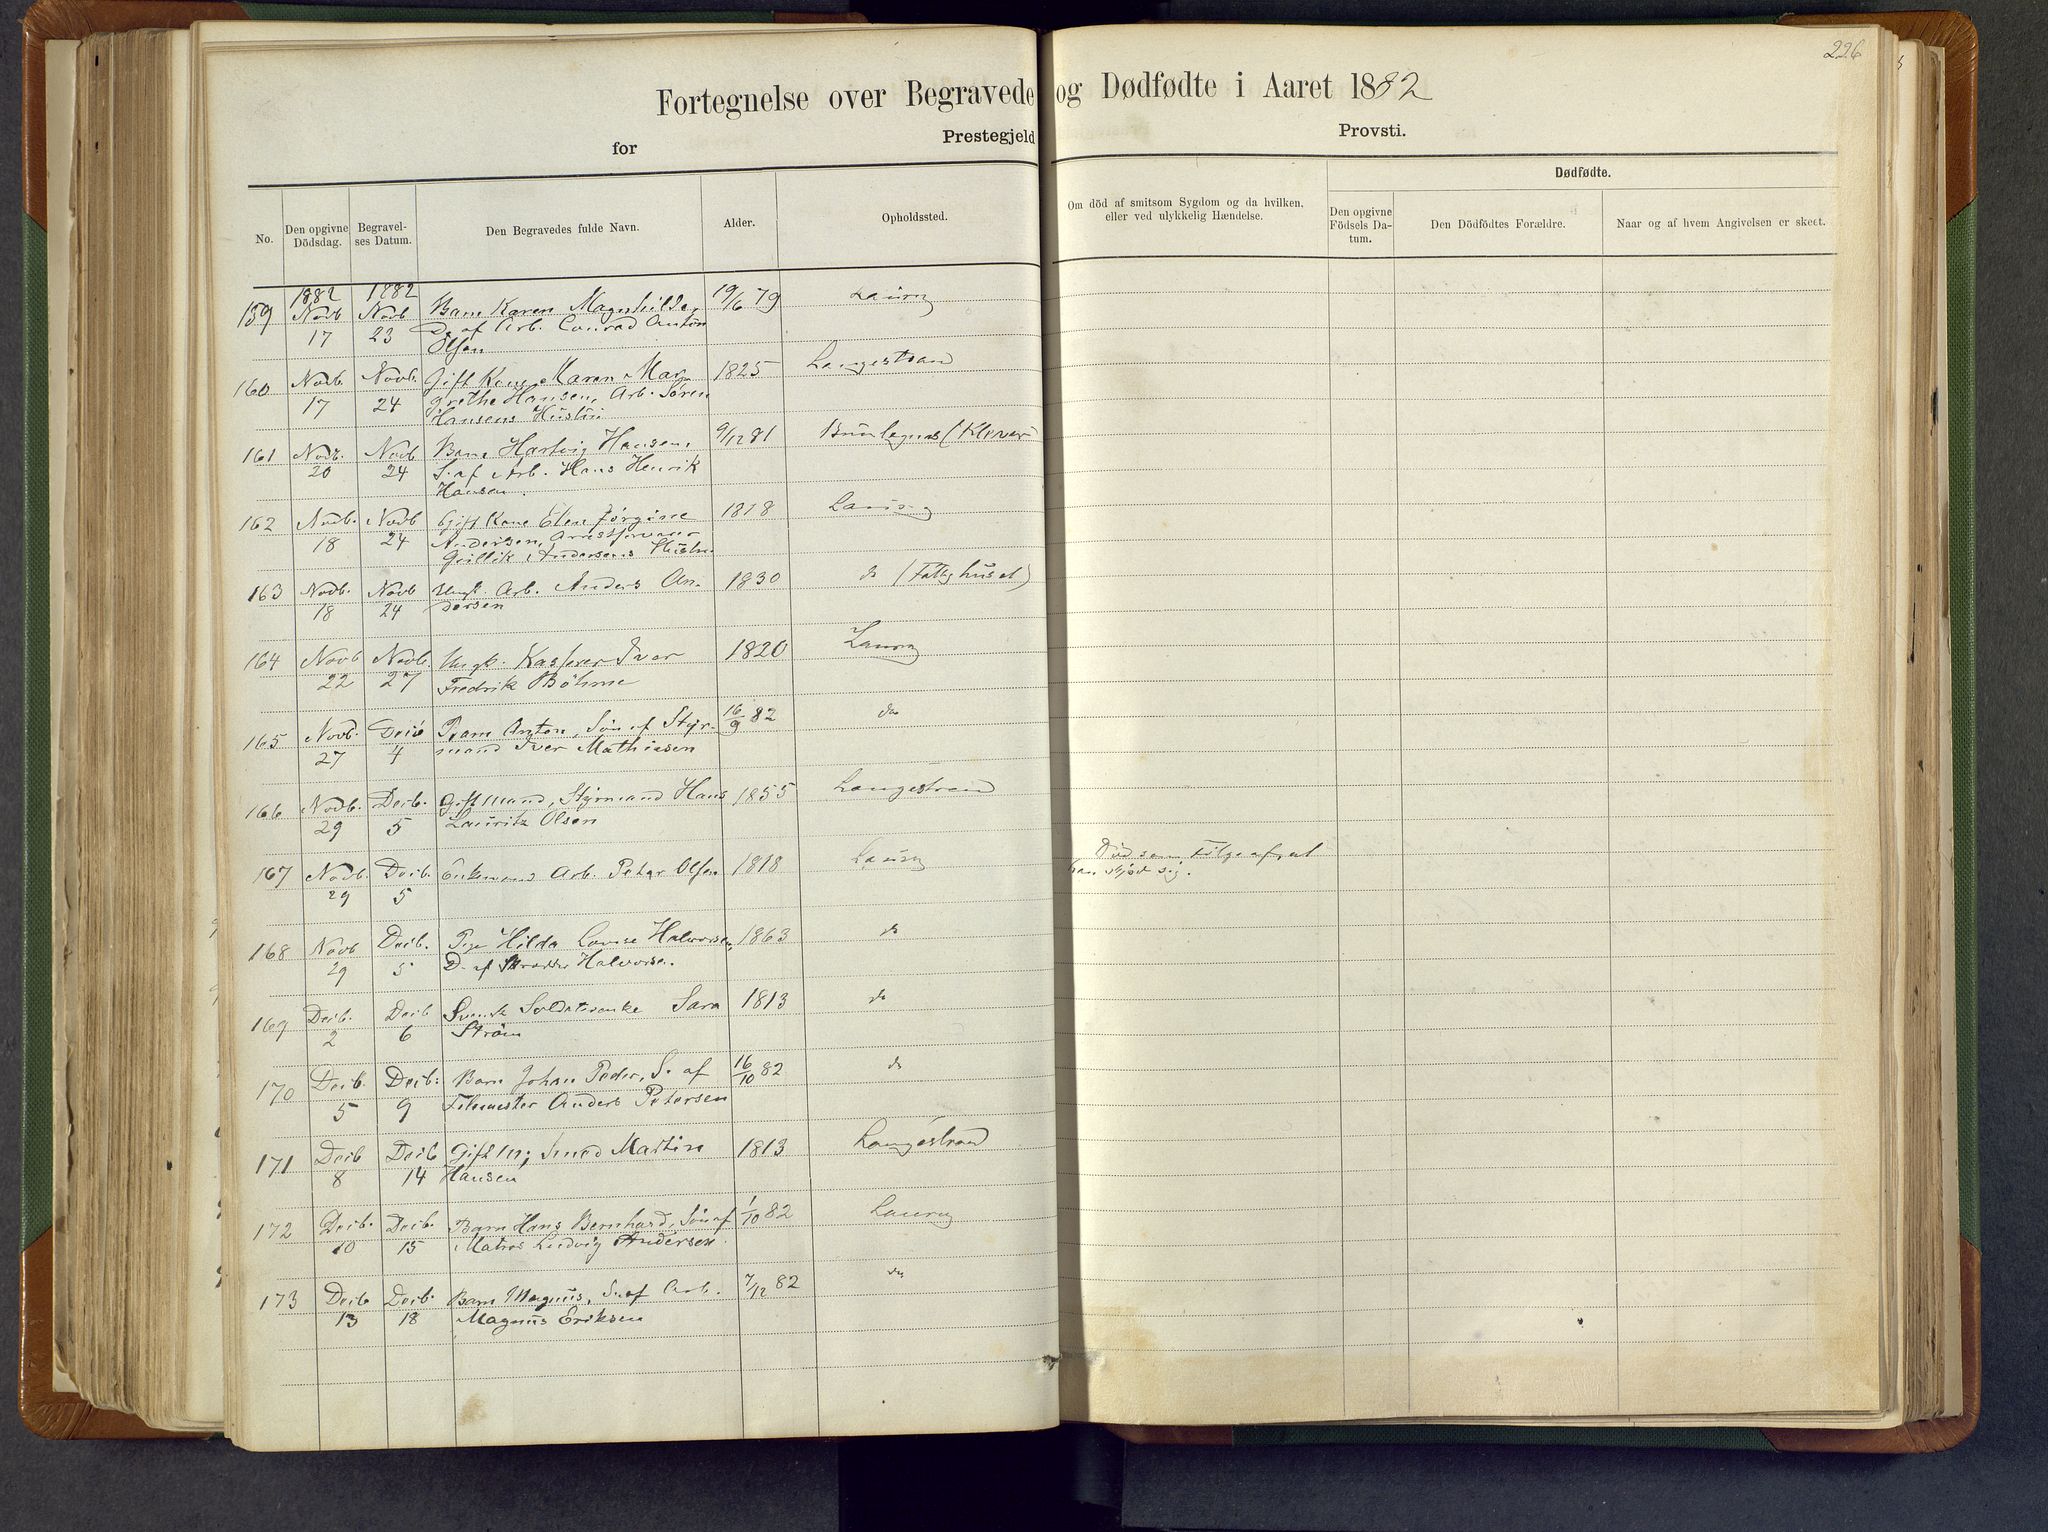 226
Fortegnelse over Begravede og Dødfødte i Aaret 1882
for Prestegjeld Provsti.
No. Den opgivne Dödsdag. Begravelses Datum. Den Begravedes fulde Navn. Alder. Opholdssted. Om död af smitsom Sygdom og da hvilken, eller ved ulykkelig Hændelse. Dødfødte.
Den opgivne Födsels Datum. Den Dödfödtes Forældre. Naar og af hvem Angivelsen er skeet.
1882 1882
159 Novb 17 Novb 23 Barn Karen Magnhilde, 19/6 79 Laurv
D. af Arb. Conrad Anton
Olsen
160 Novb. 17 Novb. 24 Gift Kone Maren Mar- 1825 Langestrand
grethe Hansen, Arb. Søren
Hansens Hustru
161 Novb. 20 Novb 24 Barn Hartvig Hansen, 9/12 81
S. af Arb. Hans Henrik
Hansen.
162 Novb. 18 Novb 24 Gift Kone Elen Jørgine 1818 Laurv
Andersen, Arrestforvarer
Gullik Andersens Hustru
163 Novb. 18 Novb 24 Ungk. Arb. Anders An- 1830 do (Fattighuset)
dersen
164 Novb 22 Novb. 27 Ungk. Kasper Iver 1820 Laurv
Fredrik Böhme
165 Novb. 27 Decb 4 Barn Anton, Søn af Styr- 16/9 82 do
mand Iver Mathissen
166 Novb. 29 Decb. 5 Gift Mand, Styrmand Hans 1855 Langestrand
Lauritz Olsen
167 Novb. 29 Decb. 5 Enkemand Arb. Peter Olsen 1818 Laurv Død som Følge af at
han skjød sig.
168 Novb 29 Decb. 5 Pige Hilda Lovise Halvorsen, 1863 do
D. af Skrædder Halvorsen.
169 Decb. 2 Decb 6 Svensk Soldatenke Sara 1813 do
Strøm
170 Decb. 5 Decb: 9 Barn Johan Peder, S. af 16/10 82 do
Feiemester Anders Petersen
171 Decb 8 Decb 14 Gift M; Smed Martin 1813 Langestrand
Hansen
172 Decb. 10 Decb. 15 Barn Hans Bernhard, Søn af 1/10 82 Laurv
Matros Ludvig Andersen.
173 Decb 13 Decb. 18 Barn Magnus, S. af Arb. 7/12 82 do
Magnus Eriksen